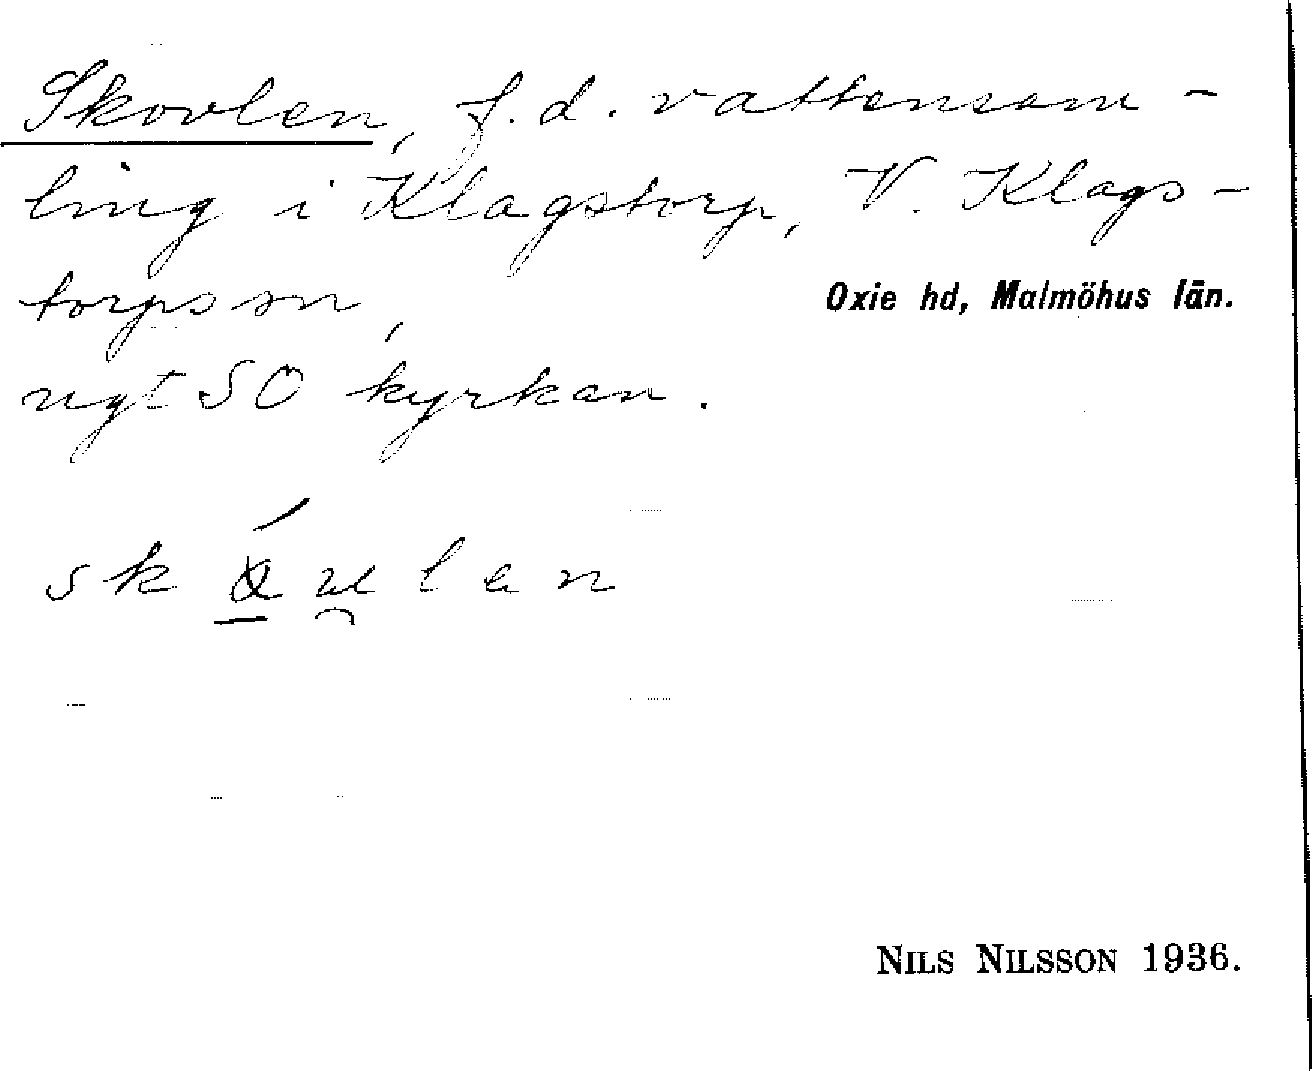 Skovlen, f.d. vattensam-
ling i Klagstorp, V. Klags-
torps sn, Oxie hd, Malmöhus län.
ngt SO kyrkan.
Nils Nilsson 1936.